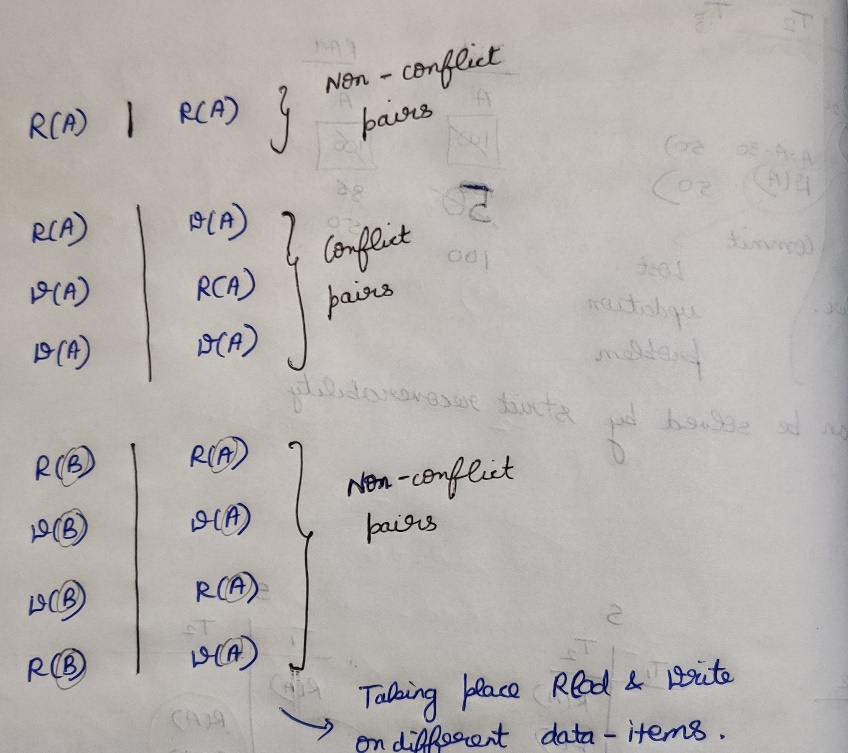 R(A) | R(A) } Non-conflict
pairs
R(A) | W(A)
W(A) | R(A) } Conflict
pairs
W(A) | W(A)
R(B) | R(A)
W(B) | W(A) } Non-conflict
pairs
W(B) | R(A)
R(B) | W(A)
Taking place Read & Write
on different data-items.